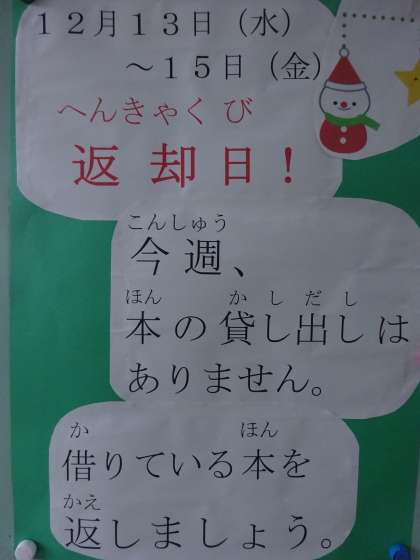 12月13日(水)
~15日(金)
へんきゃくび
返却日!
こんしゅう
今週、
ほん かしだし
本の貸し出しは
ありません。
か ほん
借りている本を
かえ
返しましょう。